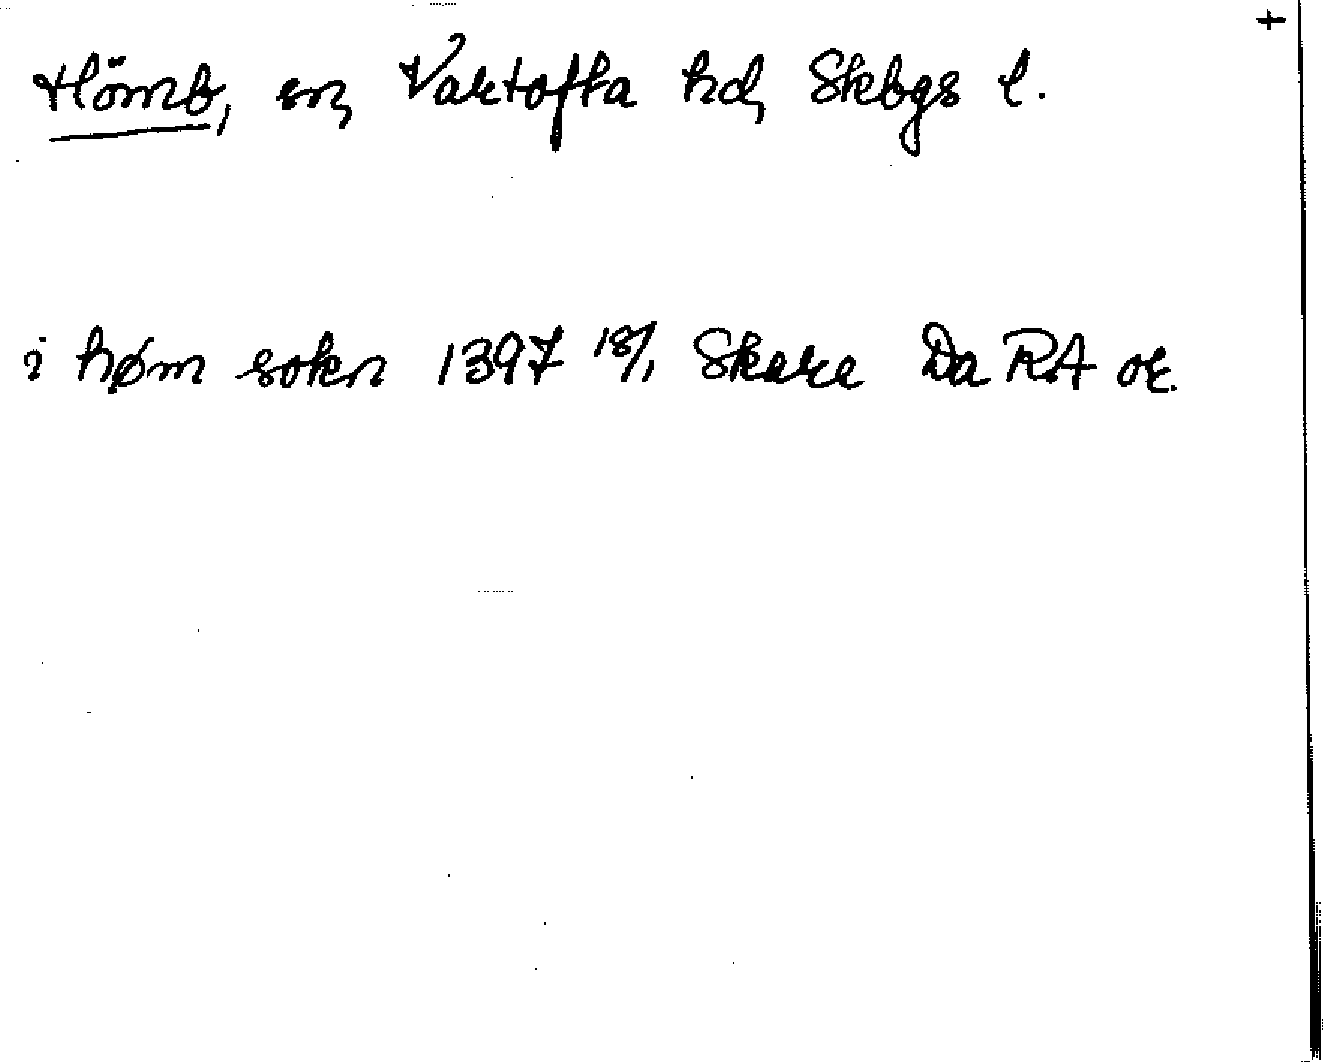 +
Hömb, sn, Vartofta hd, Skbgs l.
i høm sokn 1397 18/1 Skara Da RA or.